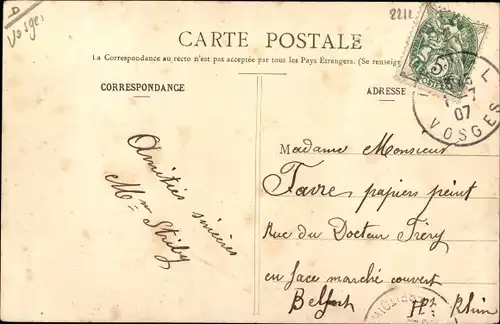 D
Vosges
2211
CARTE POSTALE
La Correspondance au recto n'est pas acceptée par tous les Pays Étrangers. (Se renseig
CORRESPONDANCE
ADRESSE
5
07
VOSGES
Amitiés sincères
Mme
Madame Monsieur
Favre papiers peint
Rue du Docteur Fréry
en face marché couvert
Belfort Ht Rhin